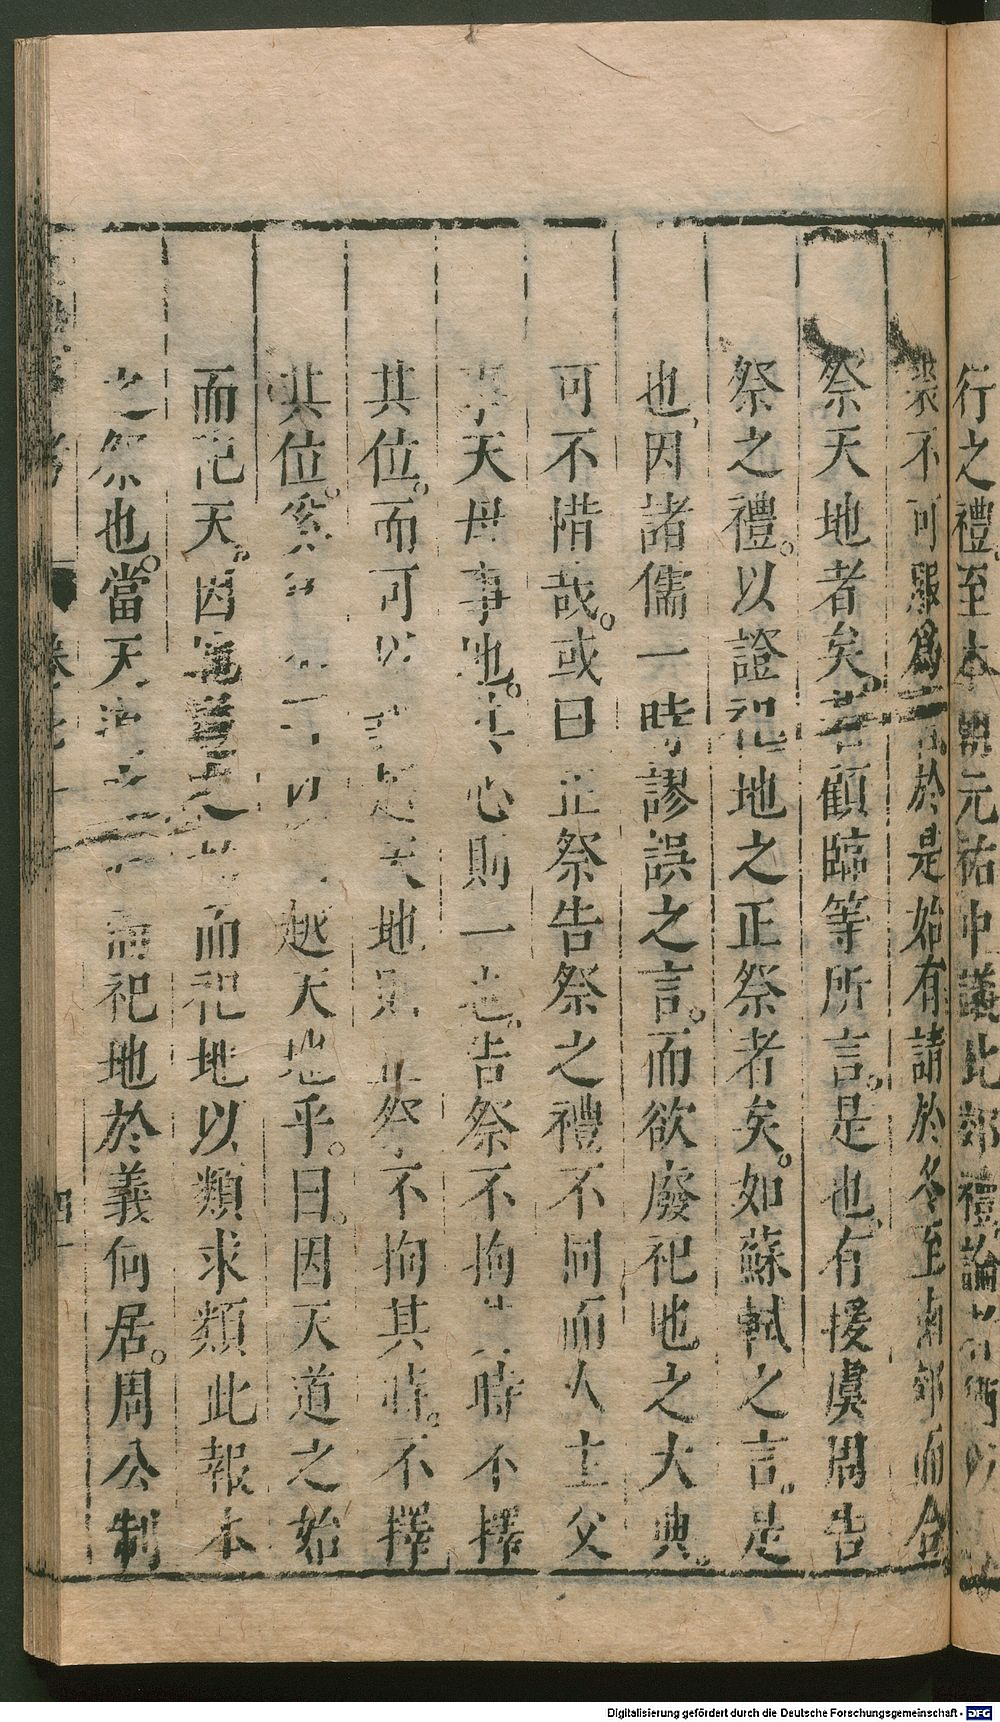 行之禮。至本朝元祐中議北郊禮論
不可驟爲 於是始有請於冬至南郊而合
祭天地者矣。若顧臨等所言。是也。有援虞周告
祭之禮。以證祀地之正祭者矣。如蘇軾之言。是
也。因諸儒一時謬誤之言。而欲廢祀地之大典。
可不惜哉。或曰正祭告祭之禮不同而人主父
事天母事地。其心則一也。告祭不拘其時不擇
其位。而可以 天地則 祭不拘其時。不擇
其位。 以 越天地乎。曰。因天道之始
而祀天。因地道之 而祀地以類求類此報本
之祭也。當天 而祀地於義何居。周公制
卷
四十
Digitalisierung gefördert durch die Deutsche Forschungsgemeinschaft - DFG